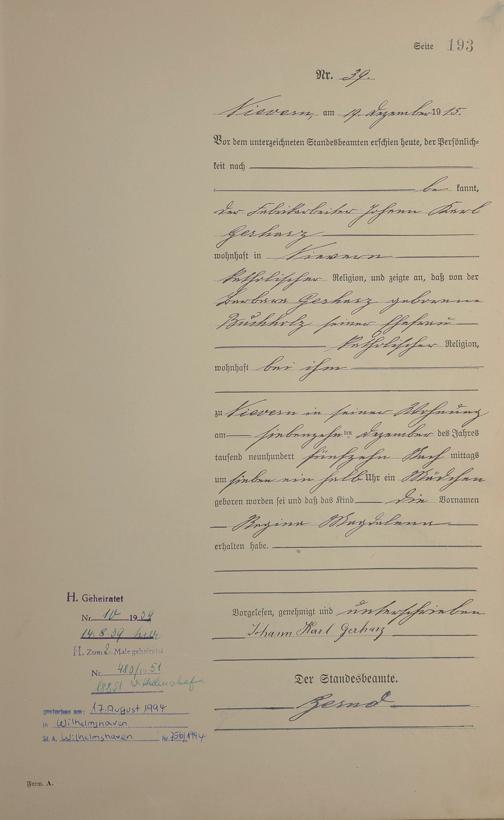 Seite 193
Nr. 39.
Nievern, am 19. Dezember 1915.
Vor dem unterzeichneten Standesbeamten erschien heute, der Persönlich-
keit nach
be kannt,
der Fabrikarbeiter Johann Karl
Gerharz
wohnhaft in Nievern
katholischer Religion, und zeigte an, daß von der
Barbara Gerharz geborene
Buchholz seiner Ehefrau
katholischer Religion,
wohnhaft bei ihm
zu Nievern in seiner Wohnung
am siebenzehn ten Dezember des Jahres
tausend neunhundert fünfzehn Nach mittags
um sieben ein halb Uhr ein Mädchen
geboren worden sei und daß das Kind die Vornamen
Regina Magdalena
erhalten habe.
Vorgelesen, genehmigt und unterschrieben
Johann Karl Gerharz
Der Standesbeamte.
H. Geheiratet
Nr. 10 1939
14.8.39
H. Zum 2. Male geheiratet
Nr. 480/1951
Wilhelmshafen
gestorben am: 17. August 1994
in Wilhelmshaven
St. A. Wilhelmshaven Nr. 750/1994
Form. A.